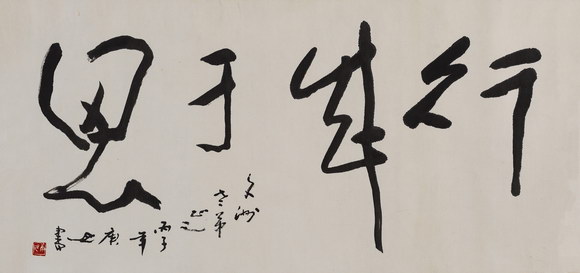 行成于思
文洲
老弟
正之
丙子
年
庚
書